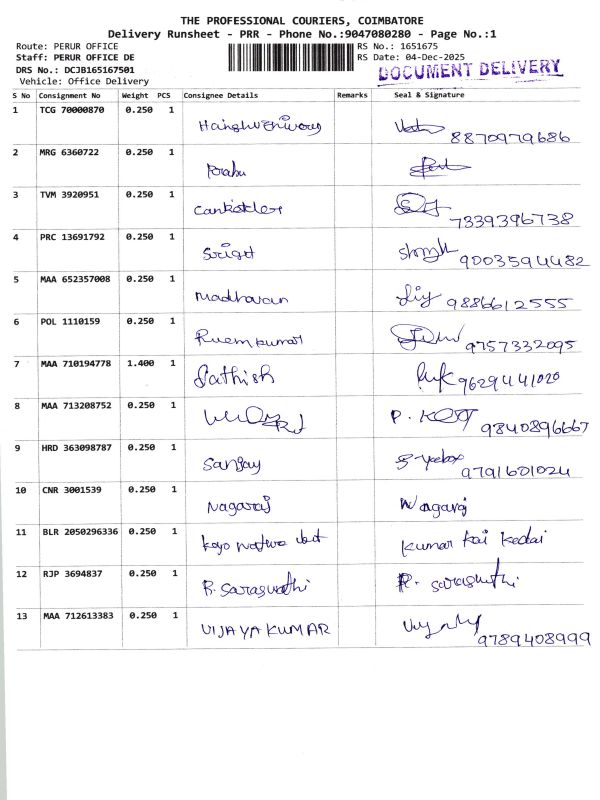 THE PROFESSIONAL COURIERS, COIMBATORE
Delivery Runsheet - PRR - Phone No.:9047080280 - Page No.:1
Route: PERUR OFFICE
RS No.: 1651675
Staff: PERUR OFFICE DE
RS Date: 04-Dec-2025
DRS No.: DCJB165167501
DOCUMENT DELIVERY
Vehicle: Office Delivery
S No Consignment No Weight PCS Consignee Details Remarks Seal & Signature
1 TCG 70000870 0.250 1
8870979686
2 MRG 6360722 0.250 1
Prabu
3 TVM 3920951 0.250 1
7339396738
4 PRC 13691792 0.250 1
9003594482
5 MAA 652357008 0.250 1
Madhavan
9886612555
6 POL 1110159 0.250 1
9757332095
7 MAA 710194778 1.400 1
Sathish 9629441020
8 MAA 713208752 0.250 1
9840896667
9 HRD 363098787 0.250 1
Sanjay
9791601024
10 CNR 3001539 0.250 1
Nagaraj Nagaraj
11 BLR 2050296336 0.250 1
kumar kai kedai
12 RJP 3694837 0.250 1
R. Saraswathi
13 MAA 712613383 0.250 1
VIJAYAKUMAR
9789408999